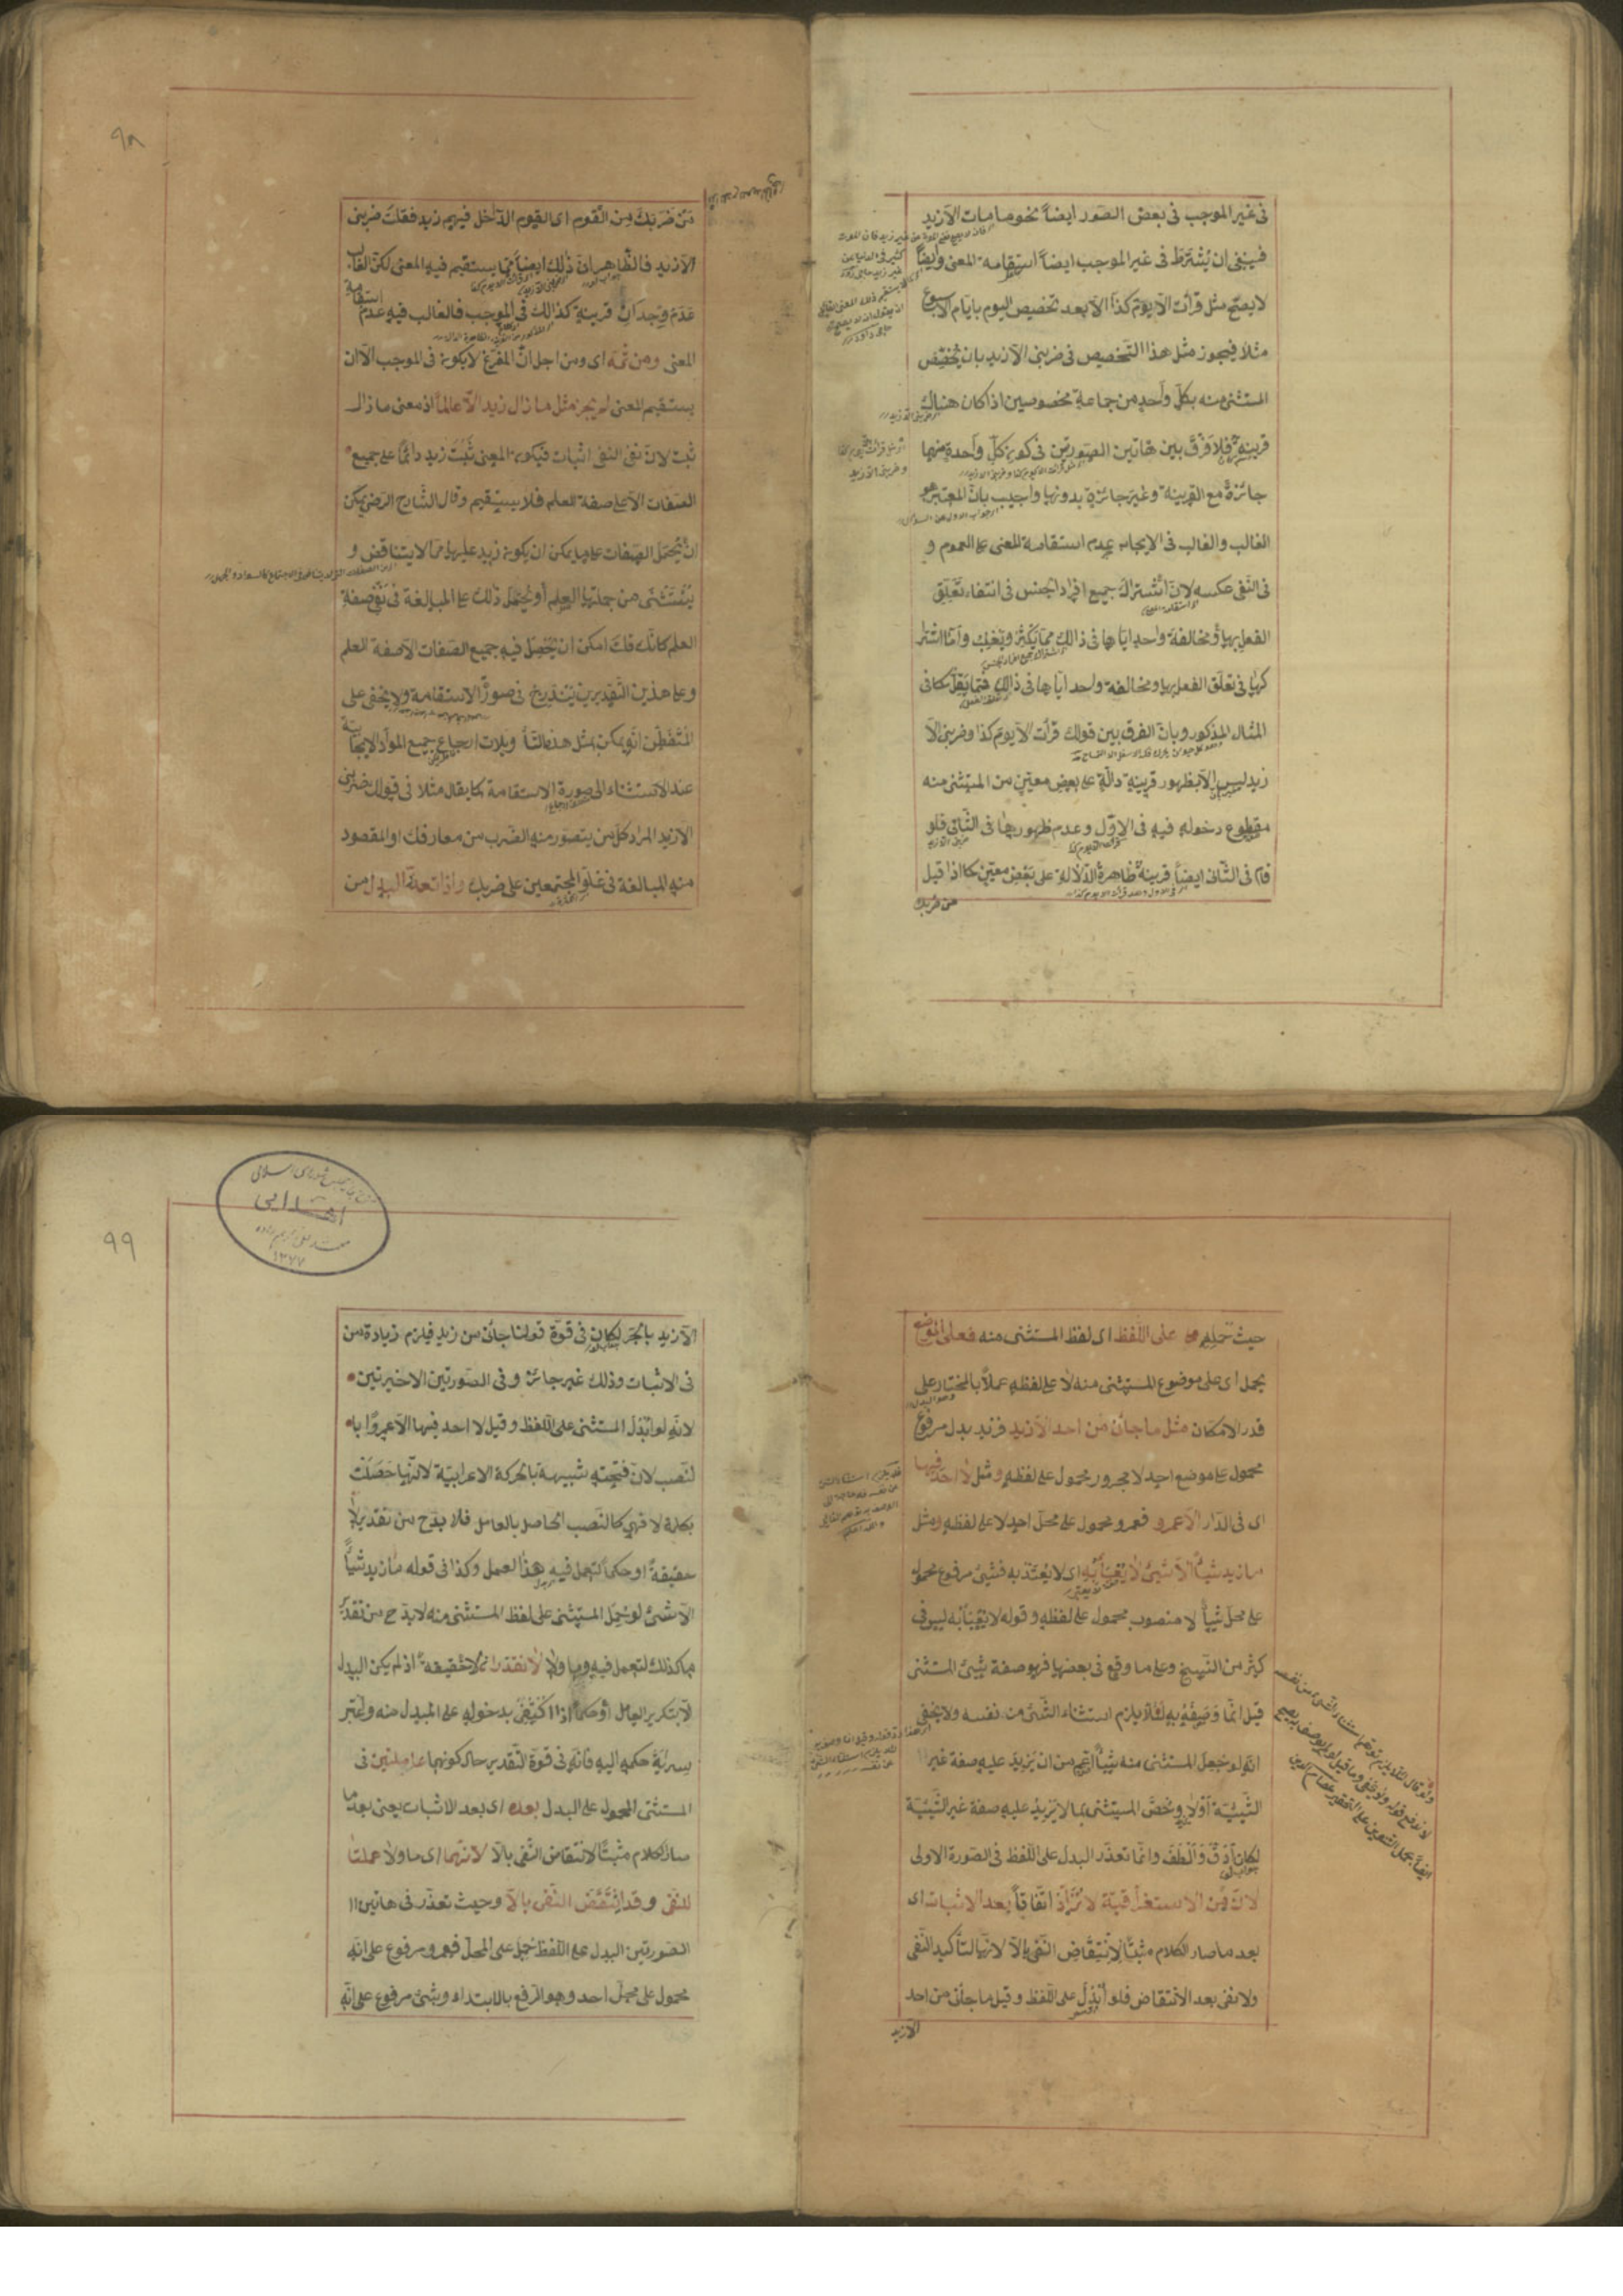 فى غير الموجب فى بعض الصور ايضاً نحو ما مات الا زيد
فينبغى ان يُشْتَرَطَ فى غير الموجب ايضاً استقامة المعنى وايضاً
لا يصحّ مثل قرأت الا يوم كذا الا بعد تخصيص اليوم بايام الاسبوع
مثلا فيجوز مثل هذا التخصيص فى ضربنى الا زيد بان يُخَصَّصَ
المستثنى منه بكلّ واحد من جماعة مخصوصين اذا كان هناك
قرينة فلا فرق بين هاتين الصورتين فى كون كلّ واحدة منهما
جائزة مع القرينة وغير جائزة بدونها واجيب بانّ المعتبر هو
الغالب والغالب فى الايجاب عدم استقامة المعنى على العموم و
فى النفى عكسه لانّ اشتراك جميع افراد الجنس فى انتفاء تعلّق
الفعل بها ومخالفة واحد ايّاها فى ذالك ممّا يكثر ويغلب وامّا اشترا
كها فى تعلّق الفعل بها ومخالفة واحد ايّاها فى ذالك فممّا يقلّ كما فى
المثال المذكور وبانّ الفرق بين قولك قرأت الا يوم كذا وضربنى الا
زيد ليس الا بظهور قرينة دالّة على بعض معيّن من المستثنى منه
مقطوع دخوله فيه فى الاوّل وعدم ظهورها فى الثانى فلو
قام فى الثانى ايضاً قرينة ظاهرة الدّلالة على بعض معيّن كما اذا قيل
من ضربك
٩٨
مَنْ ضَرَبَكَ مِن القوم اى القوم الدّاخل فيهم زيد فقلت ضربنى
الا زيد فالظاهر انّ ذٰلك ايضاً ممّا يستقيم فيه المعنى لكنّ الغالب
عدم وجدان قرينة كذالك فى الموجب فالغالب فيه عدم استقامة
المعنى ومن ثمّه اى ومن اجل انّ المفرّغ لا يكون فى الموجب الا ان
يستقيم المعنى لم يجز مثل ما زال زيد الا عالماً اذ معنى ما زال
ثبت لان نفى النفى اثبات فيكون المعنى ثَبَتَ زيد دائماً على جميع
الصفات الا على صفة العلم فلا يستقيم وقال الشارح الرضى يمكن
ان يُحمَل الصفات على ما يمكن ان يكون زيد عليها ممّا لا يتناقض و
يُسْتَثْنٰى من جملتها العلم أو يُحمَل ذٰلك على المبالغة فى نفى صفة
العلم كانّك قلت امكن ان يُحصَّل فيه جميع الصفات الا صفة العلم
وعلى هذين التقديرين يندرج فى صورة الاستقامة ولا يخفى على
المتفطّن انّه يمكن بمثل هذه التأويلات ارجاع جميع الموادّ الايجابيّة
عند الاستثناء الى صورة الاستقامة كما يقال مثلا فى قولك ضربنى
الا زيد المراد كلّ من يتصوّر منه الضرب من معارفك او المقصود
منه المبالغة فى غلوّ المجتمعين على ضربك واذا تعذّر البدل من
حيث حمله على اللفظ اى لفظ المستثنى منه فعلى الموضع
يحمل اى على موضوع المستثنى منه لا على لفظه عملاً بالمختار على
قدر الامكان مثل ما جاءنى من احد الا زيد فزيد بدل مرفوع
محمول على موضع احد لا مجرور محمول على لفظه ومثل لا احد فيها
اى فى الدّار الا عمرو فعمرو محمول على محلّ احد لا على لفظه ومثل
ما زيد شيئاً الا شئ لا يُعْبَأُ به اى لا يُعْتَدّ به فشئ مرفوع محمول
على محلّ شيئاً لا منصوب محمول على لفظه وقوله لا يعبأ به ليس فى
كثير من النسخ وعلى ما وقع فى بعضها فهو صفة شئ المستثنى
قيل انّما وصفه به لئلّا يلزم استثناء الشئ من نفسه ولا يخفى
انّه لو جعل المستثنى منه شيئاً اعمّ من ان يزيد عليه صفة غير
الشّيئيّة اوّلا وخصّ المستثنى بما لا يزيد عليه صفة غير الشّيئيّة
لكان ادقّ والطف وانّما تعذّر البدل على اللفظ فى الصورة الاولى
لانّ مِن الاستغراقيّة لا تُزَاد اتّفاقاً بعد الاثبات اى
بعد ما صار الكلام مثبتاً لانتقاض النفى بالا لانّها لتأكيد النفى
ولا نفى بعد الانتقاض فلو أُبدِل على اللفظ وقيل ما جاءنى من احد
الا زيد
٩٩
الا زيد بالجرّ لكان فى قوّة قولنا جاءنى من زيد فيلزم زيادة من
فى الاثبات وذلك غير جائز وفى الصورتين الاخيرتين
لانّه لو ابدل المستثنى على اللفظ وقيل لا احد فيها الا عمرواً با
لنصب لانّ فتحته شبيهة بالحركة الاعرابيّة لانّها حصلت
بكلمة لا فهى كالنّصب الحاصل بالعامل فلا بدّ ح من تقدير لا
حقيقة او حكماً لتعمل فيه هذا العمل وكذا فى قوله ما زيد شيئاً
الا شئ لو حُمِل المستثنى على لفظ المستثنى منه لا بدّ ح من تقدير
ما كذلك لتعمل فيه وما ولا لا تقدّران لا حقيقة اذ لم يكن البدل
الا بتكرير العامل أو حكماً اذا اكتُفِى بدخوله على المبدل منه واعتبر
سراية حكمه اليه فانّه فى قوّة التّقدير حال كونهما عاملتين فى
المستثنى المحمول على البدل بعده اى بعد الاثبات يعنى بعد ما
صار الكلام مثبتاً لانتقاض النفى بالا لانّهما اى ما ولا عملتا
للنفى وقد انتقض النفى بالا وحيث تعذّر فى هاتين
الصورتين البدل على اللفظ حمل على المحلّ فعمرو مرفوع على انّه
محمول على محلّ احد وهو الرفع بالابتداء وشئ مرفوع على انّه